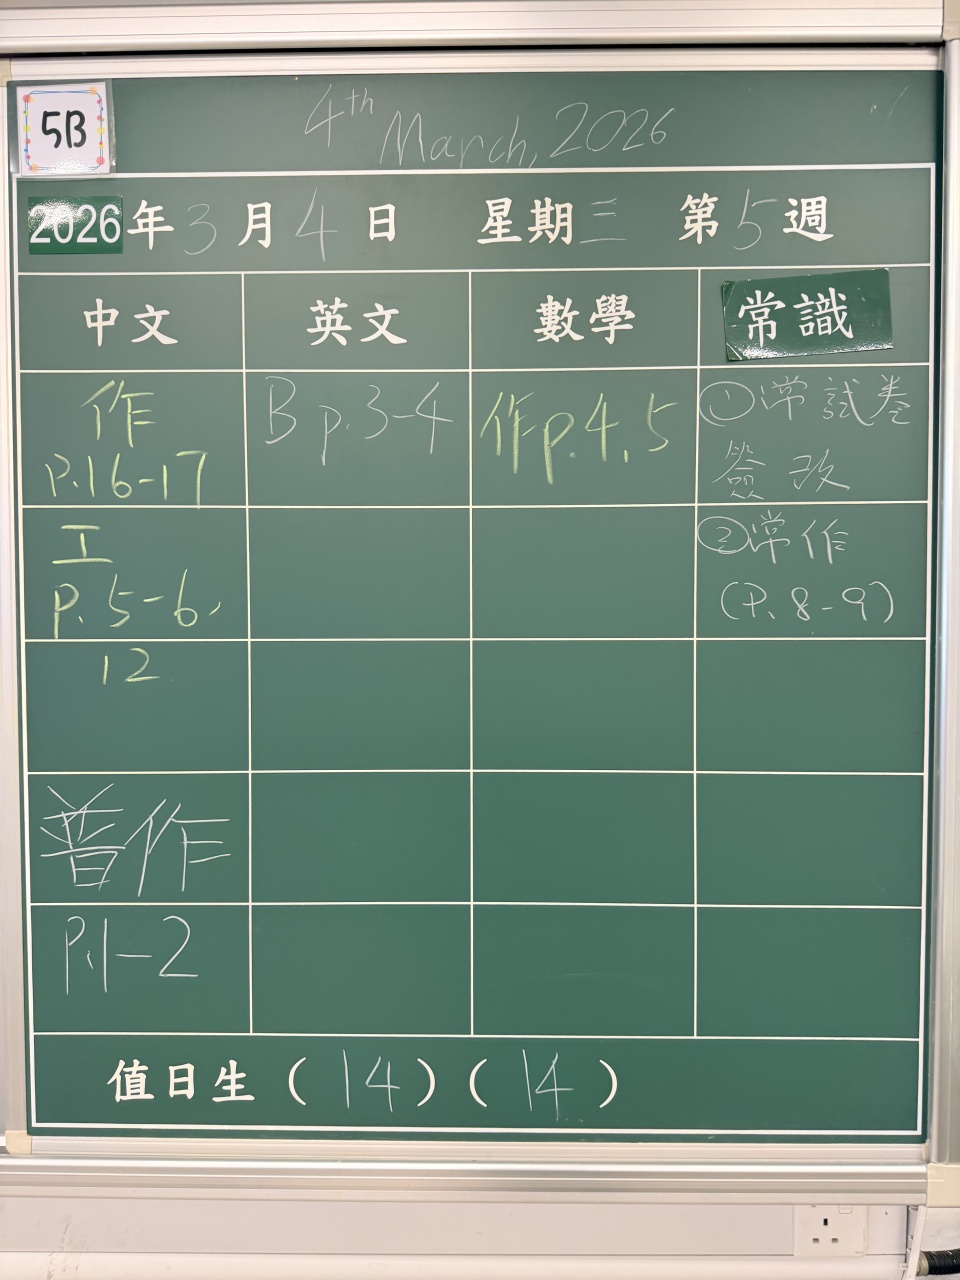 5B
4th March, 2026
2026年3月4日 星期三 第5週
中文 英文 數學 常識
作
P.16-17
B p.3-4
作p.4,5
①常試卷
簽改
工
P.5-6,
12
②常作
(P.8-9)
普作
P.1-2
值日生(14)(14)